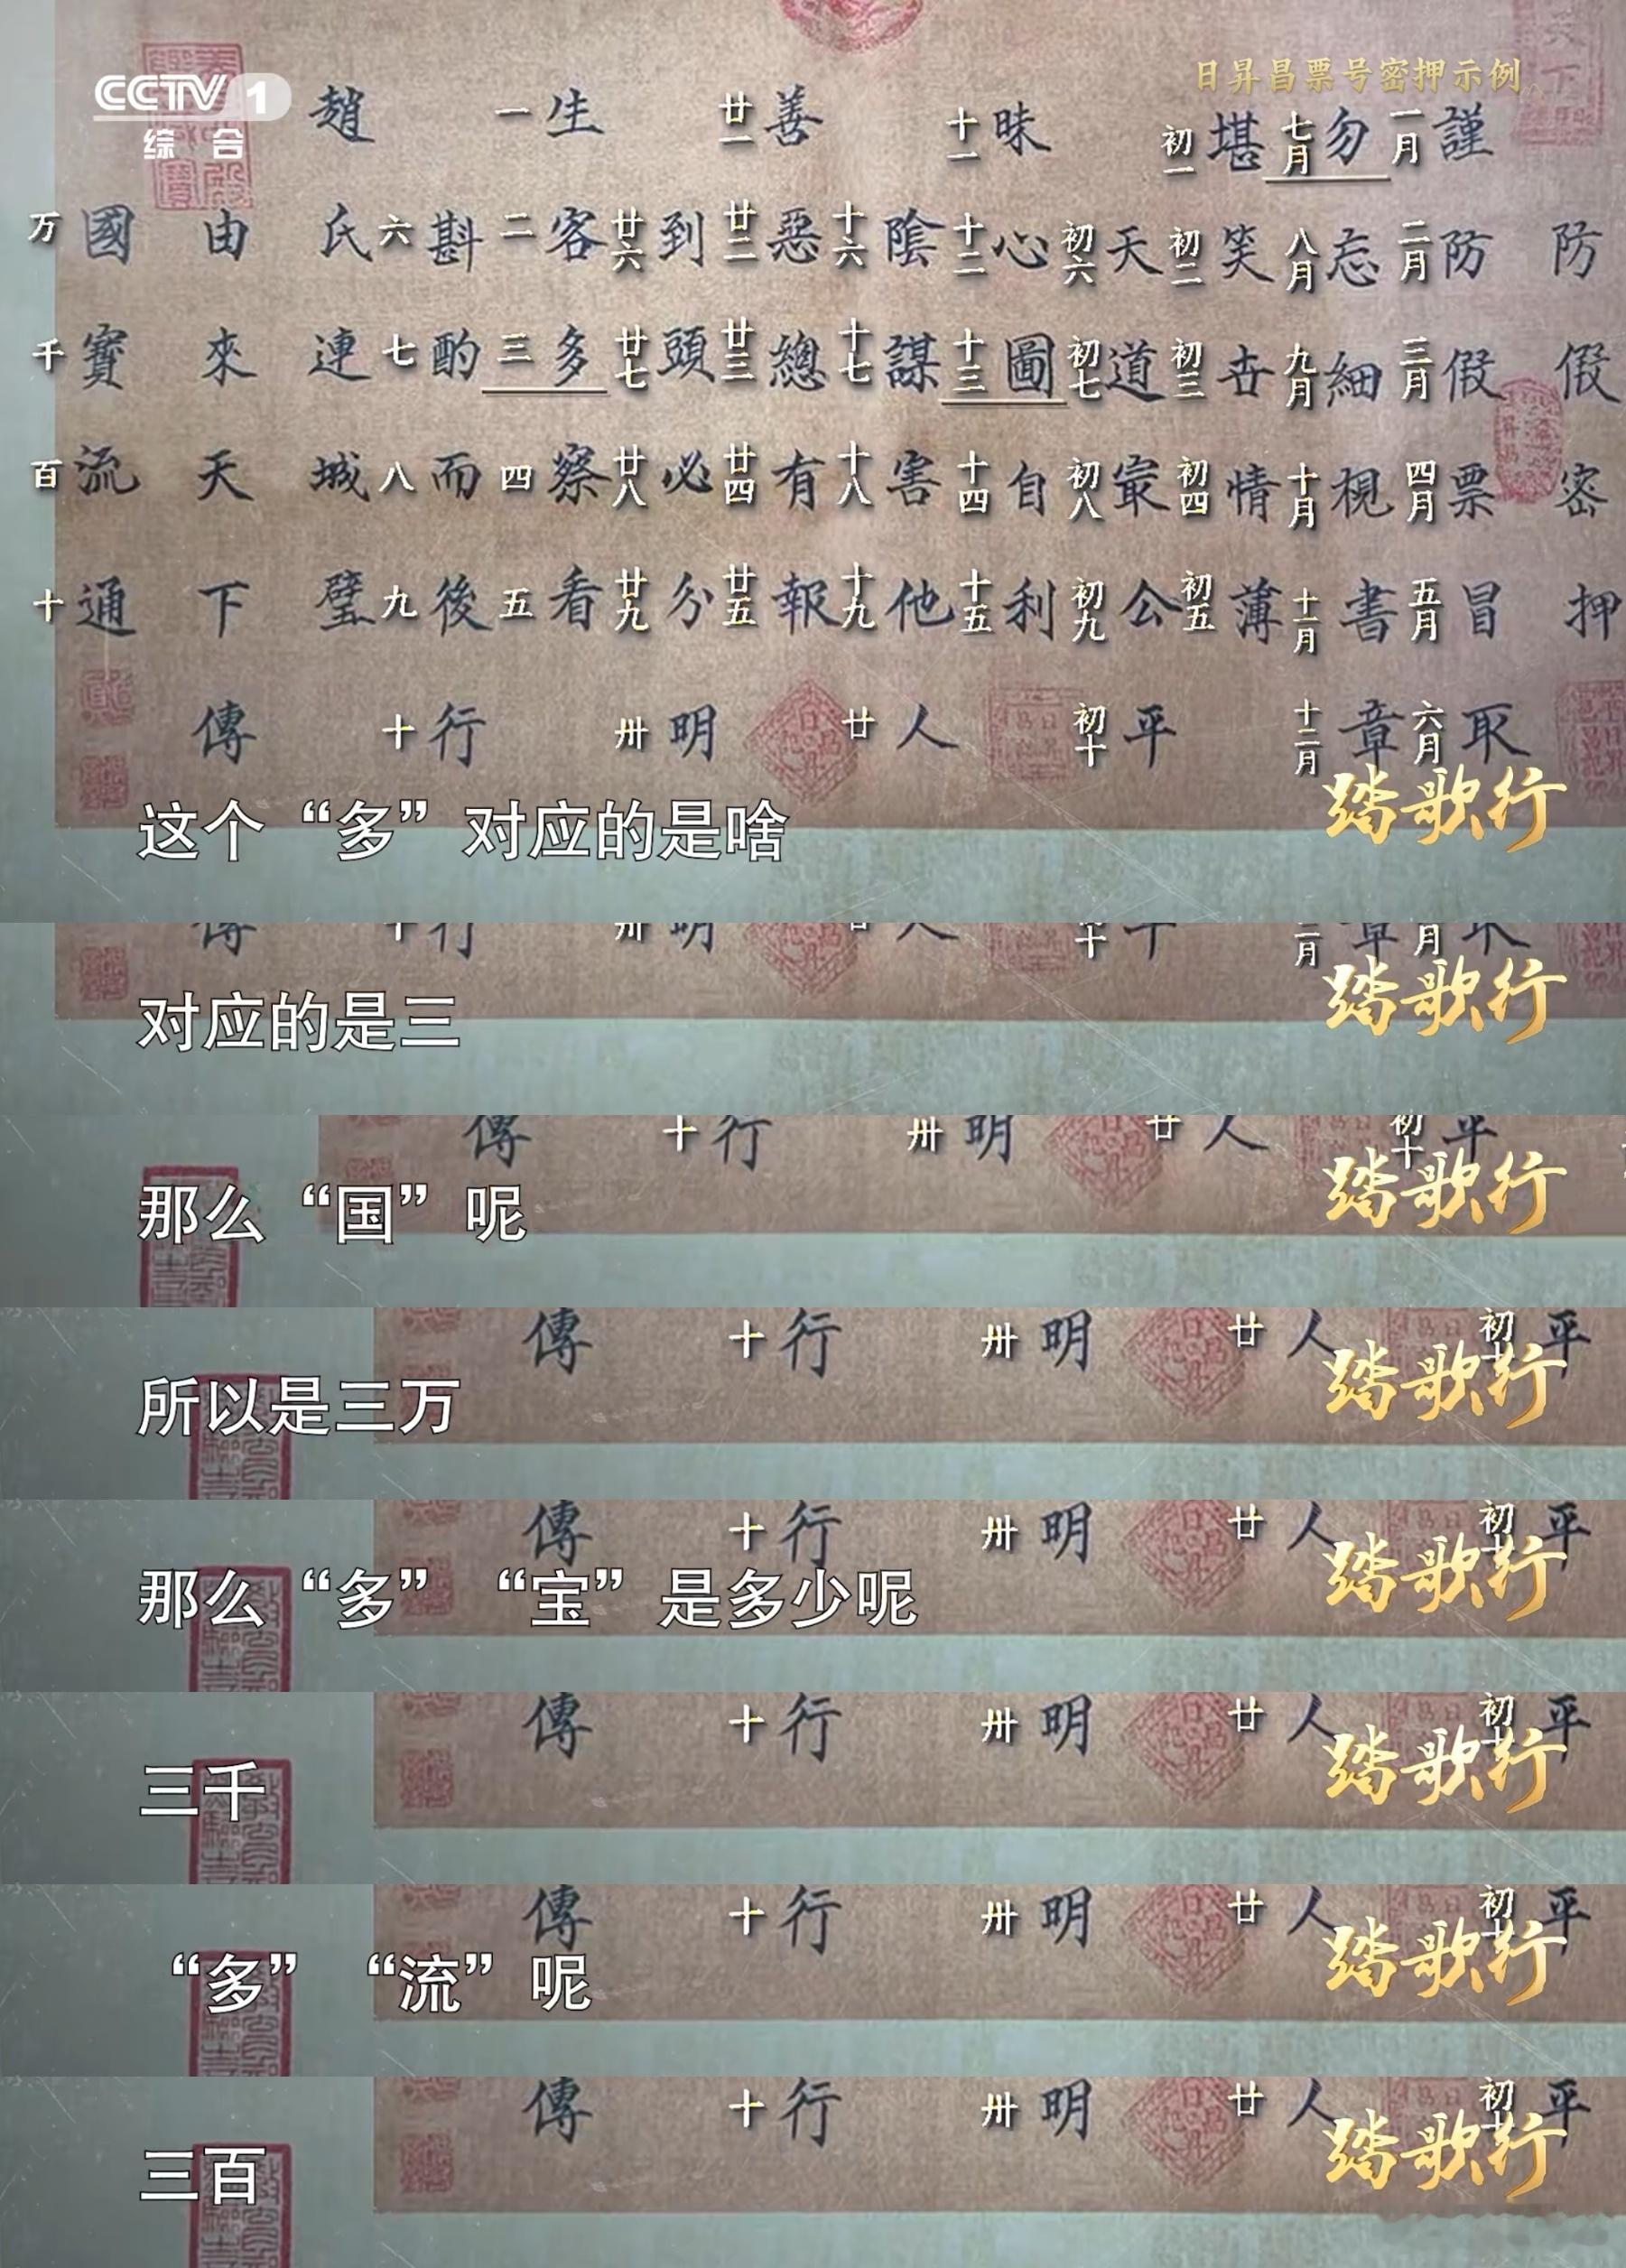 CCTV 1
综合
日昇昌票号密押示例
防假密押
謹防假票冒取
一月 二月 三月 四月 五月 六月
勿忘細視書章
七月 八月 九月 十月 十一月 十二月
堪笑世情薄
初一 初二 初三 初四 初五
天道最公平
初六 初七 初八 初九 初十
昧心圖自利
十一 十二 十三 十四 十五
陰謀害他人
十六 十七 十八 十九 廿
善惡總有報
廿一 廿二 廿三 廿四 廿五
到頭必分明
廿六 廿七 廿八 廿九 卅
生客多察看
一 二 三 四 五
斟酌而後行
六 七 八 九 十
趙氏連城璧
由來天下傳
國寶流通
万 千 百 十
踏歌行
这个“多”对应的是啥
踏歌行
对应的是三
踏歌行
那么“国”呢
踏歌行
所以是三万
踏歌行
那么“多”“宝”是多少呢
踏歌行
三千
踏歌行
“多”“流”呢
踏歌行
三百